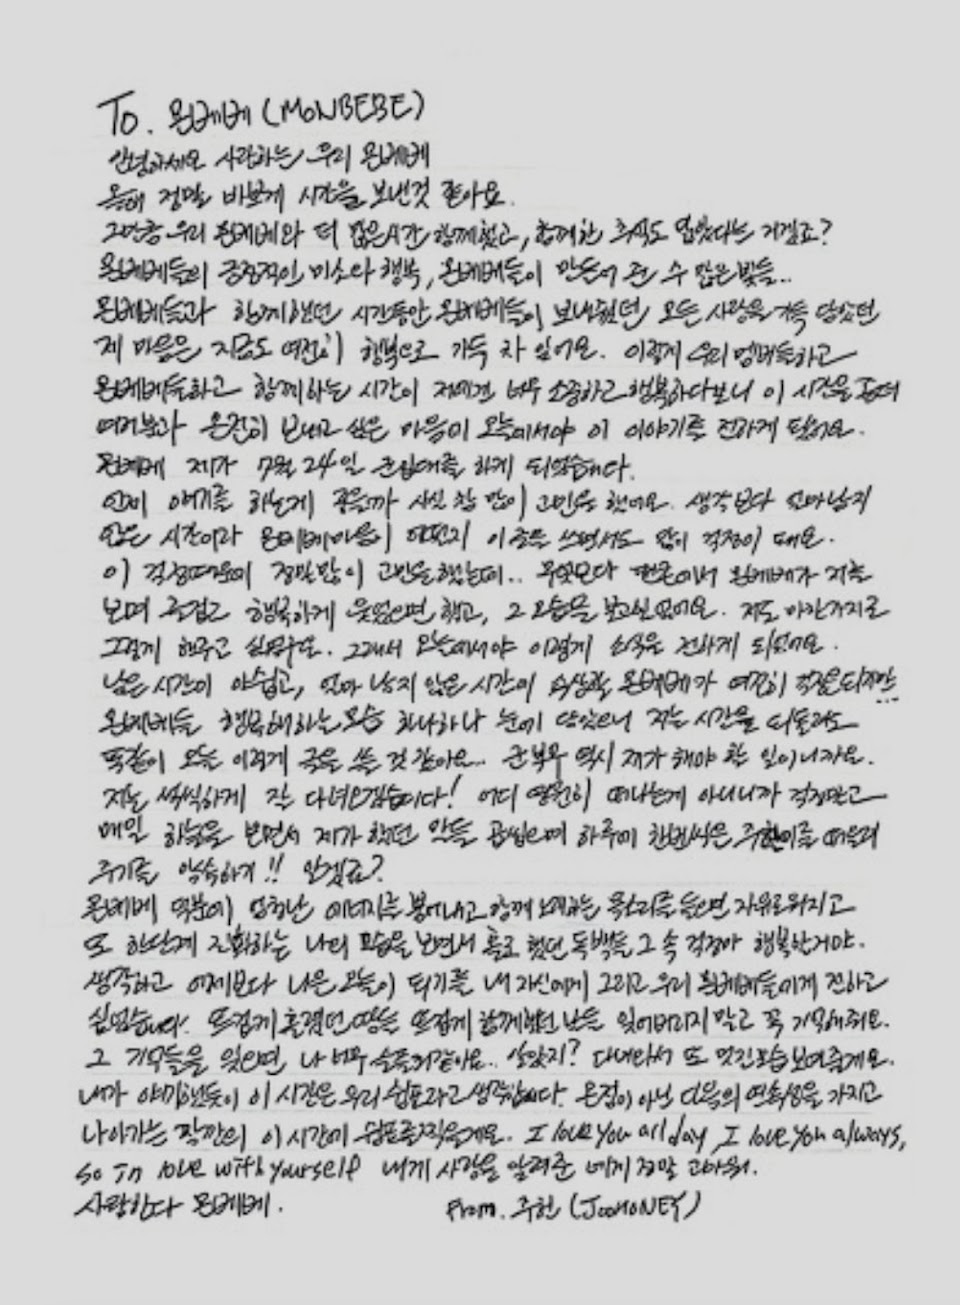 To. 몬베베 (MONBEBE)
안녕하세요 사랑하는 우리 몬베베
올해 정말 바쁘게 시간을 보낸것 같아요.
그만큼 우리 몬베베와 더 많은시간 함께했고, 함께한 추억도 많았다는 거겠죠?
몬베베들의 긍정적인 미소와 행복, 몬베베들이 만들어 준 수 많은 빛들..
몬베베들과 함께했던 시간동안 몬베베들이 보내줬던 모든 사랑을 가득 담았던
제 마음은 지금도 여전히 행복으로 가득 차 있어요. 이렇게 우리 멤버들하고
몬베베들하고 함께하는 시간이 저에겐 너무 소중하고 행복하다보니 이 시간을 좀더
여러분과 온전히 보내고 싶은 마음에 오늘에서야 이 이야기를 전하게 됐어요.
몬베베 제가 7월 24일 군입대를 하게 되었습니다.
언제 얘기를 하는게 좋을까 사실 참 많이 고민을 했어요. 생각보다 얼마남지
않은 시간이라 몬베베마음이 어떤지 이 글을 쓰면서도 많이 걱정이 돼요.
이 걱정때문에 정말많이 고민을했는데.. 무엇보다 팬콘에서 몬베베가 저를
보며 즐겁고 행복하게 웃었으면 했고, 그 모습을 보고싶었어요. 저도 마찬가지로
그렇게 해주고 싶었구요. 그래서 오늘에서야 이렇게 소식을 전하게 되었어요.
남은 시간이 아쉽고, 얼마 남지 않은 시간이 속상할 몬베베가 여전히 걱정은되지만...
몬베베들 행복해하는모습 하나하나 눈에 담았으니 저는 시간을 되돌려도
똑같이 오늘 이렇게 글을 쓸 것 같아요.. 군복무 역시 제가 해야 할 일이니까요.
저는 씩씩하게 잘 다녀오겠습니다! 어디 영원히 떠나는게 아니니까 걱정말고
매일 하늘을 보면서 제가 했던 말들 곱씹으며 하루에 한번씩은 주헌이를 떠올려
주기를 약속하기!! 알겠죠?
몬베베 덕분에 엄청난 에너지를 뿜어내고 함께 노래하는 목소리를 들으면 자유로워지고
또 한단계 진화하는 나의 모습을 보면서 홀로 했던 독백들, 그 속 걱정마 행복한거야.
생각하고 어제보다 나은 오늘이 되기를 내 자신에게 그리고 우리 몬베베들에게 전하고
싶었습니다. 뜨겁게 흘렸던 땀들 뜨겁게 함께했던 날들 잊어버리지 말고 꼭 기억해줘요.
그 기억들을 잊으면, 나 너무 슬플거같아요.. 알았지? 다녀와서 또 멋진모습 보여줄게요.
내가 얘기했듯이 이 시간은 우리 쉼표라고 생각합니다. 온점이 아닌 다음의 연속성을 가지고
나아가는 잠깐의 이 시간에 쉼표를찍을게요. I love you all day I love you always,
so in love with yourself 내게 사랑을 알려준 너에게 정말 고마워.
사랑한다 몬베베.
From. 주헌 (JOOHONEY)